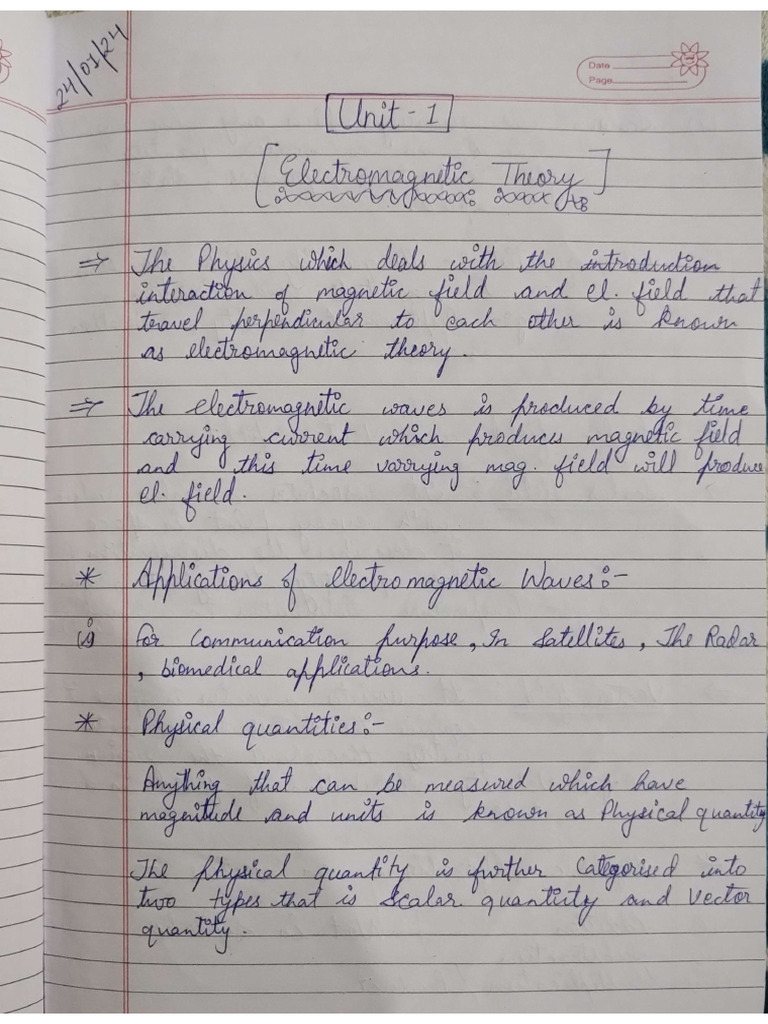 24/01/24
Date
Page
Unit - 1
[Electromagnetic Theory]
⇒ The Physics which deals with the introduction
interaction of magnetic field and el. field that
travel perpendicular to each other is known
as electromagnetic theory.
⇒ The electromagnetic waves is produced by time
carrying current which produces magnetic field
and this time varrying mag. field will produce
el. field.
* Applications of electromagnetic Waves:-
(i) for communication purpose, In Satellites, The Radar
, biomedical applications.
* Physical quantities:-
Anything that can be measured which have
magnitude and units is known as Physical quantity
The physical quantity is further Categorised into
two types that is scalar quantity and vector
quantity.